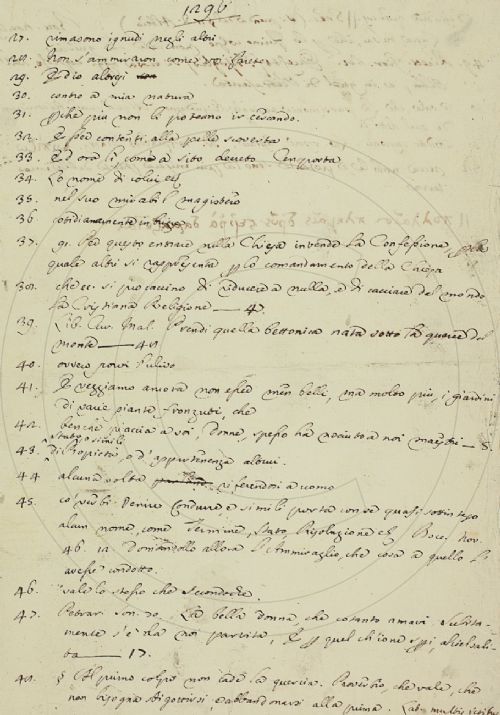 1296
27. rimasono ignudi negli altri
28. Non s'ammirairon, come voi fareto
29. Ed io altresi
30. contro a mia natura
31. pchè piu non li poteano ir cercando.
32. E per contenti alla pelle scoverta
33. Ed ora li, come a sito decreto Cen porta
34. Lo nome di colui eč
35. nel suo mirabil magistero
36. cotidianamente in
37. 91. Per questo entrare nella Chiesa intendo La Confessione, p la
quale altri si rappresenta p lo comandamento della Chiesa
38. che si procaccino di riducere a nulla, e di cacciare del mondo
la Cristiana Religione — 47.
39. Lib. Cur. Mal. Prendi quella bettonica nata sotto la querce del
monte — 48
40. ovvero provi l'ulivo
41. E veggiamo ancora non esser men belli, ma molto piu, i giardini
di varie piante fronzuti, che
42. benchè piaccia a voi, donne, spesso ha nociuto a noi maestri — 8.
Stato o simili
43. Di Proprietà, o d'appartenenza altrui.
44 alcuna volta riferendosi a como
45. co' verbi Venire Condurre, e simili porta con se quasi sottinteso
alcun nome, come Termine, Stato, Risoluzione eč Bocc. Nov.
46. 12. Domandollo allora l'Ammiraglio, che cosa a quello l'a
vesse condotto.
46. vale lo stesso che secondochè.
47. Petrar. Son. 70. La bella donna, che cotanto amavi Subita-
mente s'è da noi partita, E p quel ch'io ne speri, al ciel sali-
ta — 17.
48. § Al primo colpo non cade la quercia. Proverbio, che vale, che
non bisogna sbigottirsi e abbandonarsi alla prima. Lab. multis ictibus